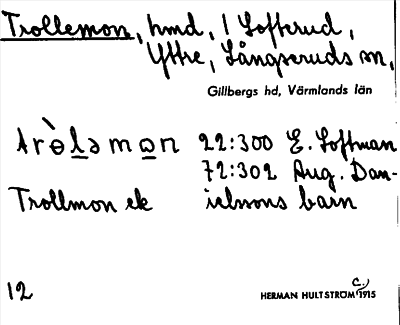 Trollemon, hmd, 1 Lofterud,
Yttre, Långseruds sn,
Gillbergs hd, Värmlands län
22:300 E. Loffman
72:302 Aug. Dan-
Trollmon ek ielssons barn
12 HERMAN HULTSTRÖM c. 1915